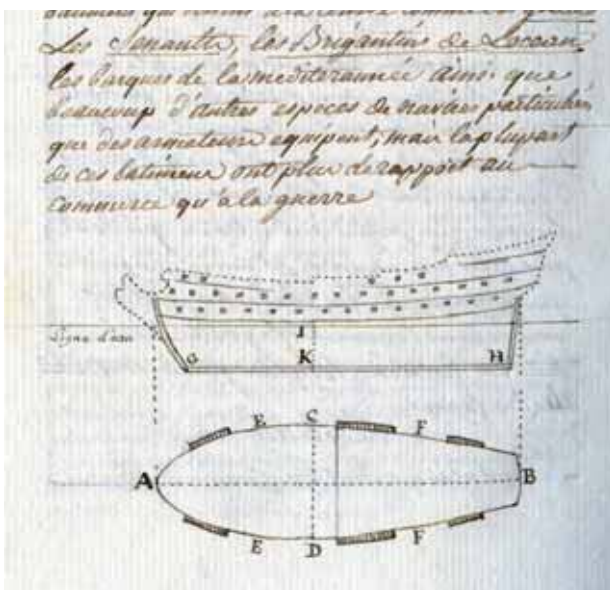 Les Senautts, les Brigantins de Locean,
les barques de la mediterannée ainsi que
beaucoup d'autres especes de navires particuliers
que des armateurs equipent, mais la plupart
de ces batimens ont plus de rapport au
commerce qu'a la guerre
Ligne d'eau
I
G
K
H
E
C
F
A
B
E
D
F